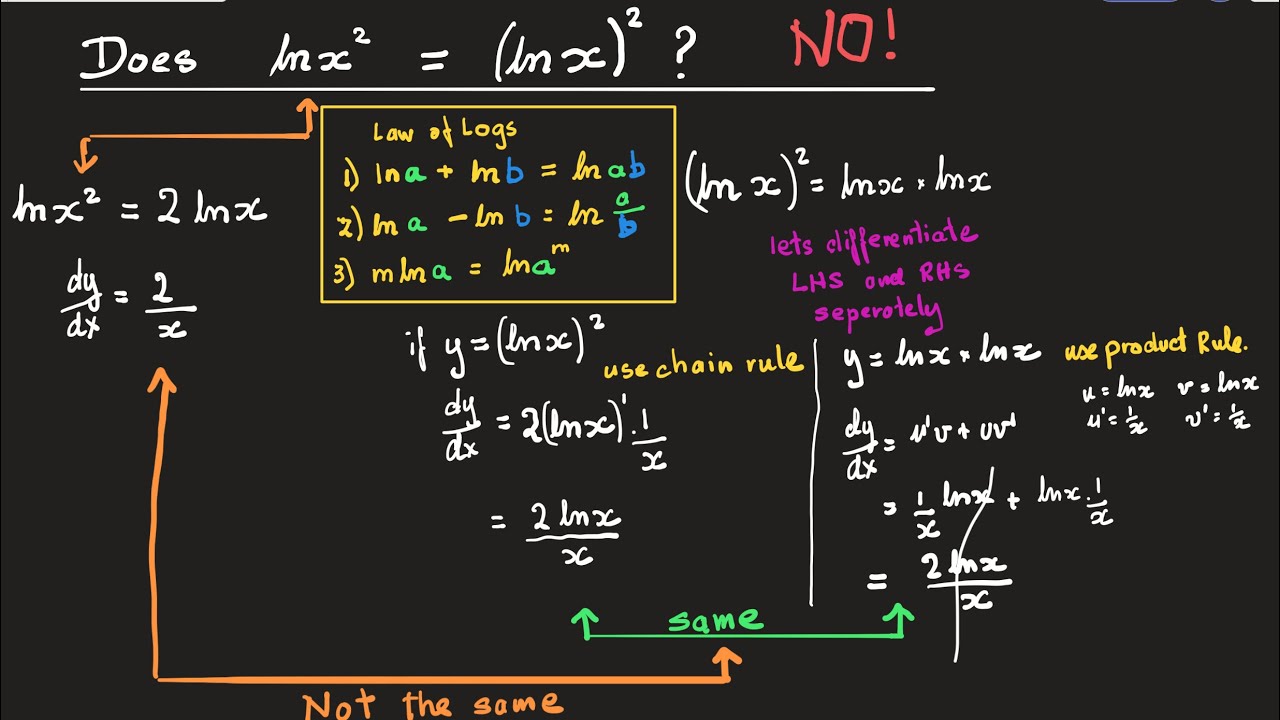 Does lnx² = (lnx)² ? NO!
Law of Logs
1) lna + lnb = lnab
2) lna - lnb = ln a/b
3) mlna = lna^m
lnx² = 2 lnx
dy/dx = 2/x
(ln x)² = lnx × lnx
lets differentiate
LHS and RHS
seperotely
if y = (lnx)²
use chain rule
dy/dx = 2(lnx)¹ . 1/x
= 2 lnx/x
y = lnx × lnx use product Rule.
u = lnx v = lnx
u' = 1/x v' = 1/x
dy/dx = u'v + uv'
= 1/x lnx + lnx . 1/x
= 2 lnx/x
same
Not the same